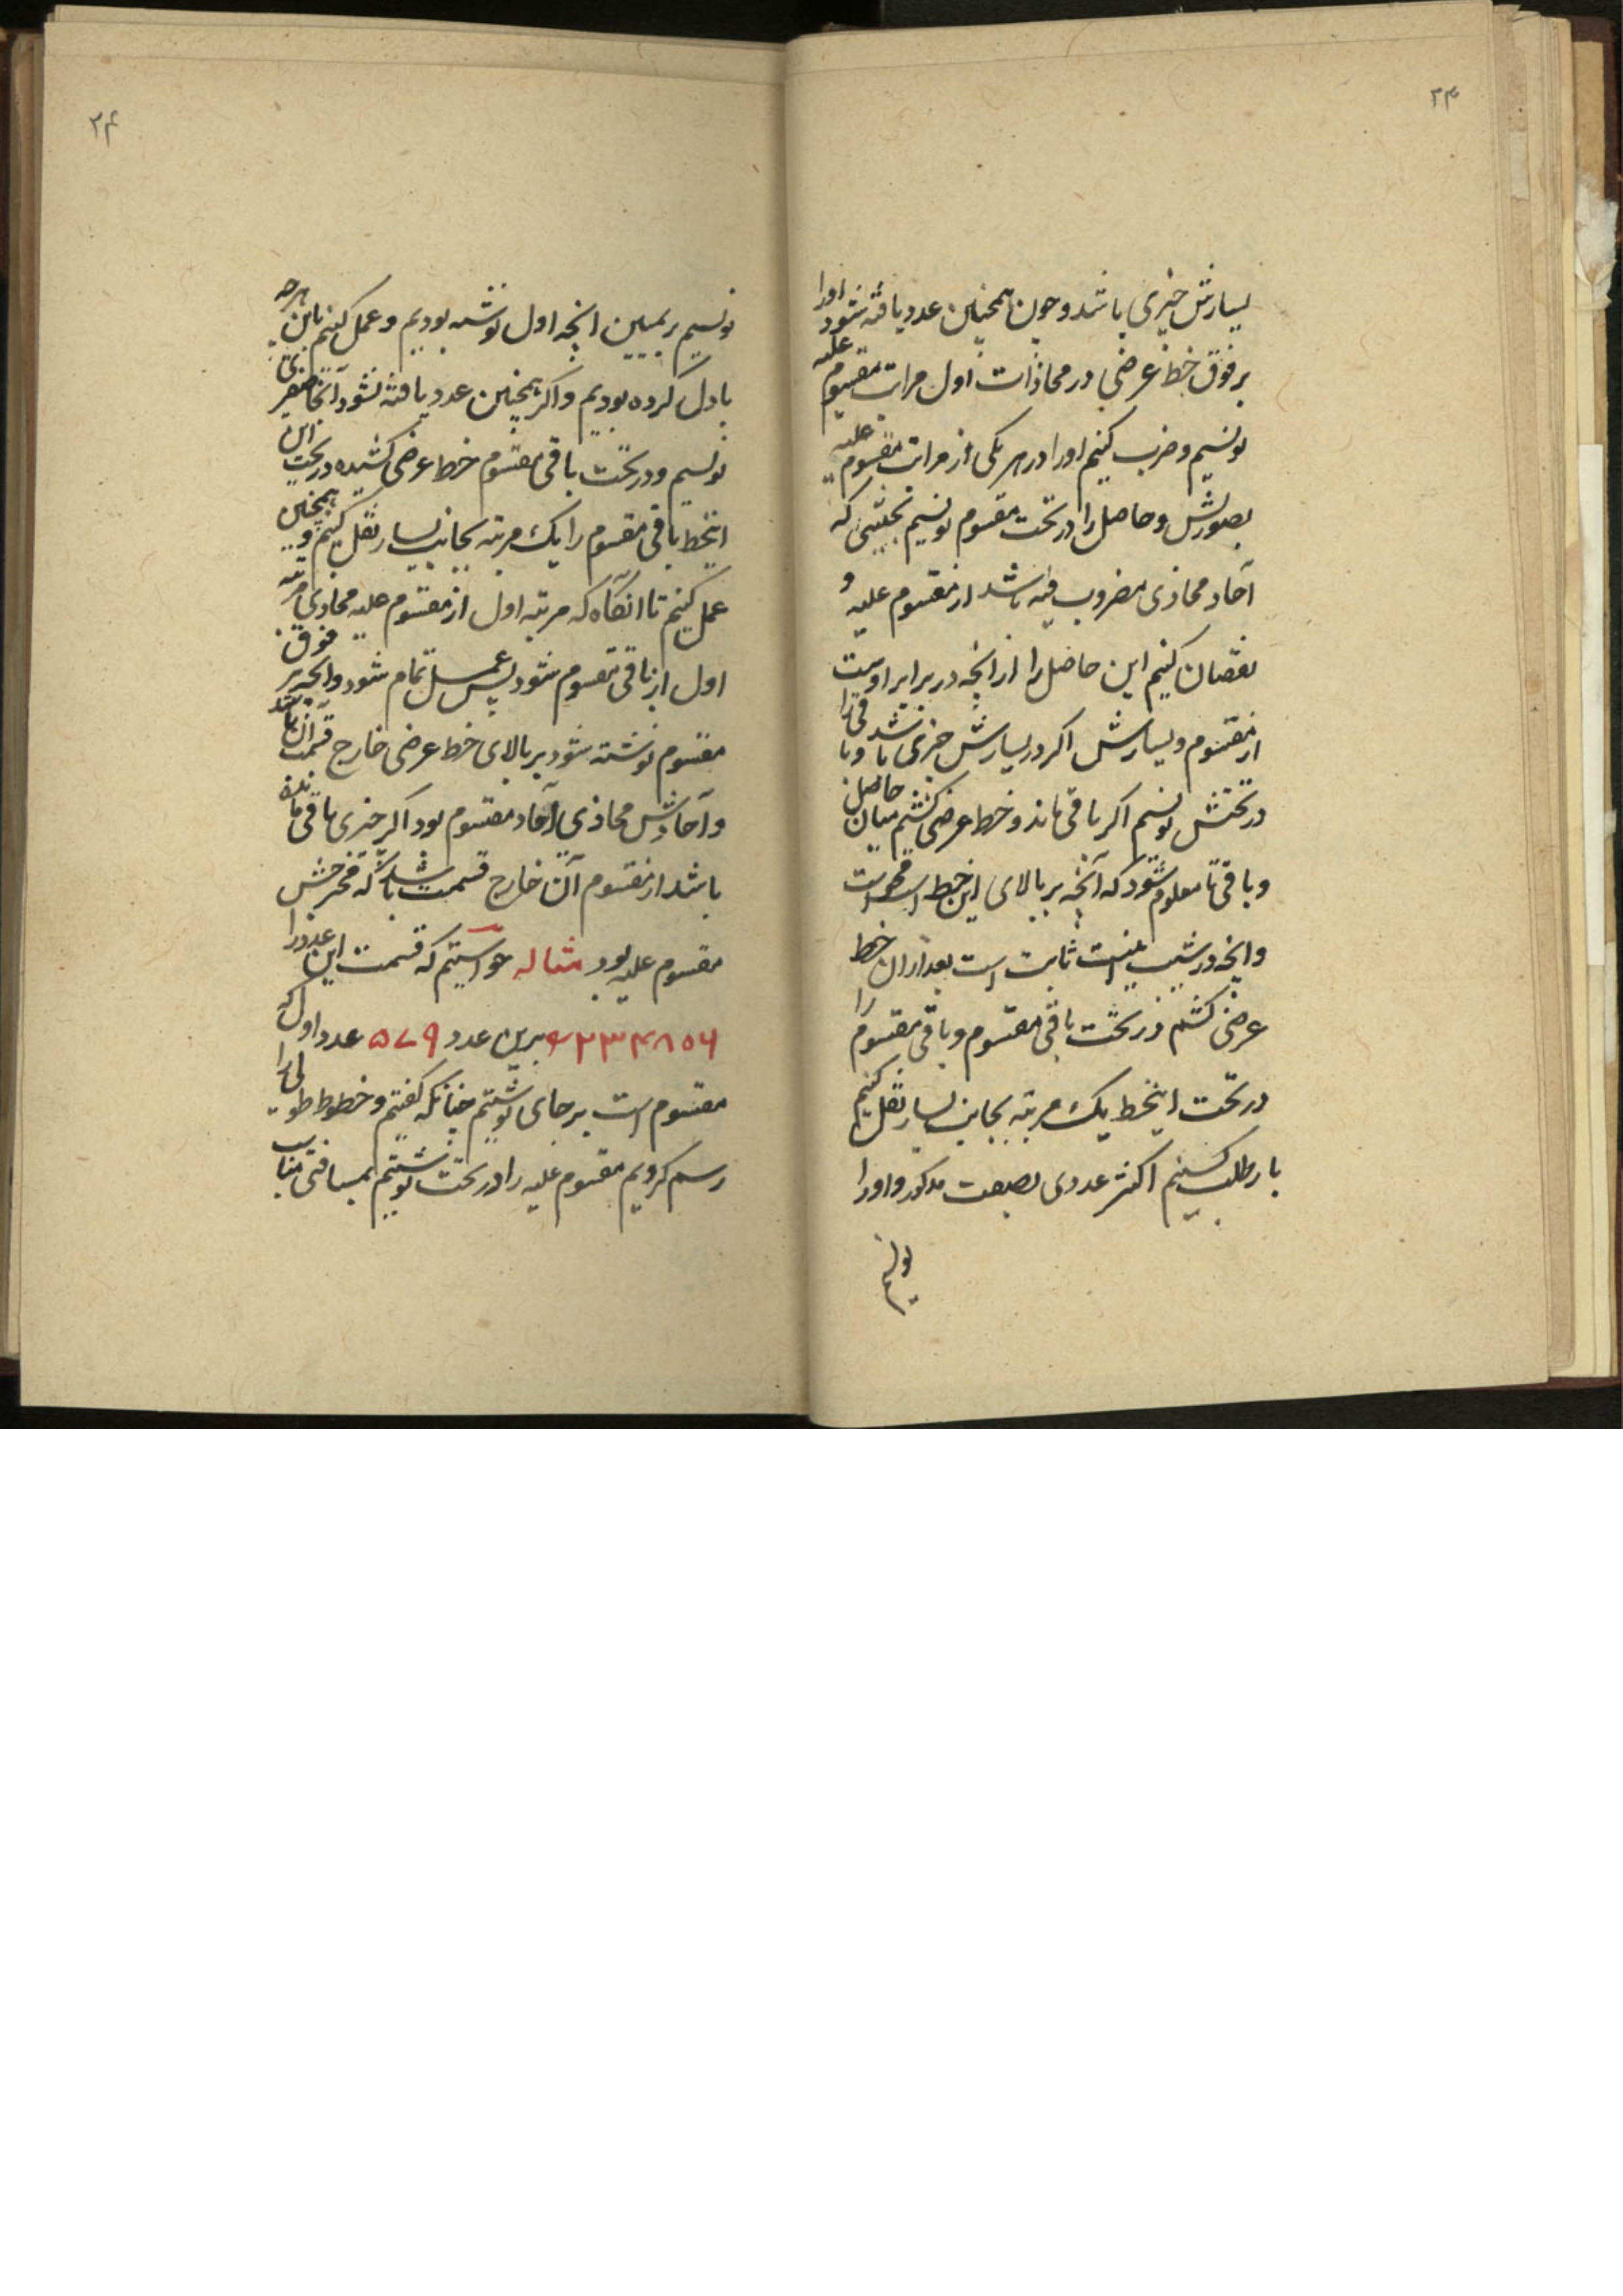 ۲۳
یسارش چیزی باشد و چون همچنین عدد یافته شود اورا
بر فوق خط عرضی در محاذات اول مراتب مقسوم علیه
نویسیم و ضرب کنیم اورا در هر یکی از مراتب مقسوم علیه
بصورتش و حاصل را در تحت مقسوم نویسیم بحیثیتی که
آحاد محاذی مضروب فیه باشد از مقسوم علیه و
نقصان کنیم این حاصل را از آنچه در برابر اوست
از مقسوم و یسارش اکر در یسارش چیزی باشد و باقی را
در تحتش نویسیم اکر باقی ماند و خط عرضی کشیم میان حاصل
و باقی تا معلوم شود که آنچه بر بالای این خط است محو است
وانچه در شیب اینست ثابت است بعد از ان خط
عرضی کشیم در تحت باقی مقسوم و باقی مقسوم را
در تحت اینخط یک مرتبه بجانب یسار نقل کنیم
باز طلب کنیم اکثر عددی بصفت مذکور و اورا
نویسیم
۲۴
نویسیم بر یمین انچه اول نوشته بودیم و عمل کنیم باین هرچه
باول کرده بودیم و اکر همچنین عدد یافته نشود آنجا صفری
نویسیم و در تحت باقی مقسوم خط عرضی کشیده در تحت این
اینخط باقی مقسوم را یک مرتبه بجانب یسار نقل کنیم و همچنین
عمل کنیم تا آنکاه که مرتبه اول از مقسوم علیه محاذی مرتبه
اول از باقی مقسوم شود پس عمل تمام شود وانچه بر فوق
مقسوم نوشته شود بر بالای خط عرضی خارج قسمت آن باشد
و آحادش محاذی آحاد مقسوم بود اکر چیزی باقی مانده
باشد از مقسوم آن خارج قسمت باشد که مخرجش
مقسوم علیه بود مثاله خواستیم که قسمت این عدد را
۹۲۳۴۸۵۶ برین عدد ۵۷۹ عدد اول که
مقسوم است بر جای نوشتیم چنانکه کفتیم و خطوط طولی را
رسم کردیم مقسوم علیه را در تحت نوشتیم بمسافتی مناسب